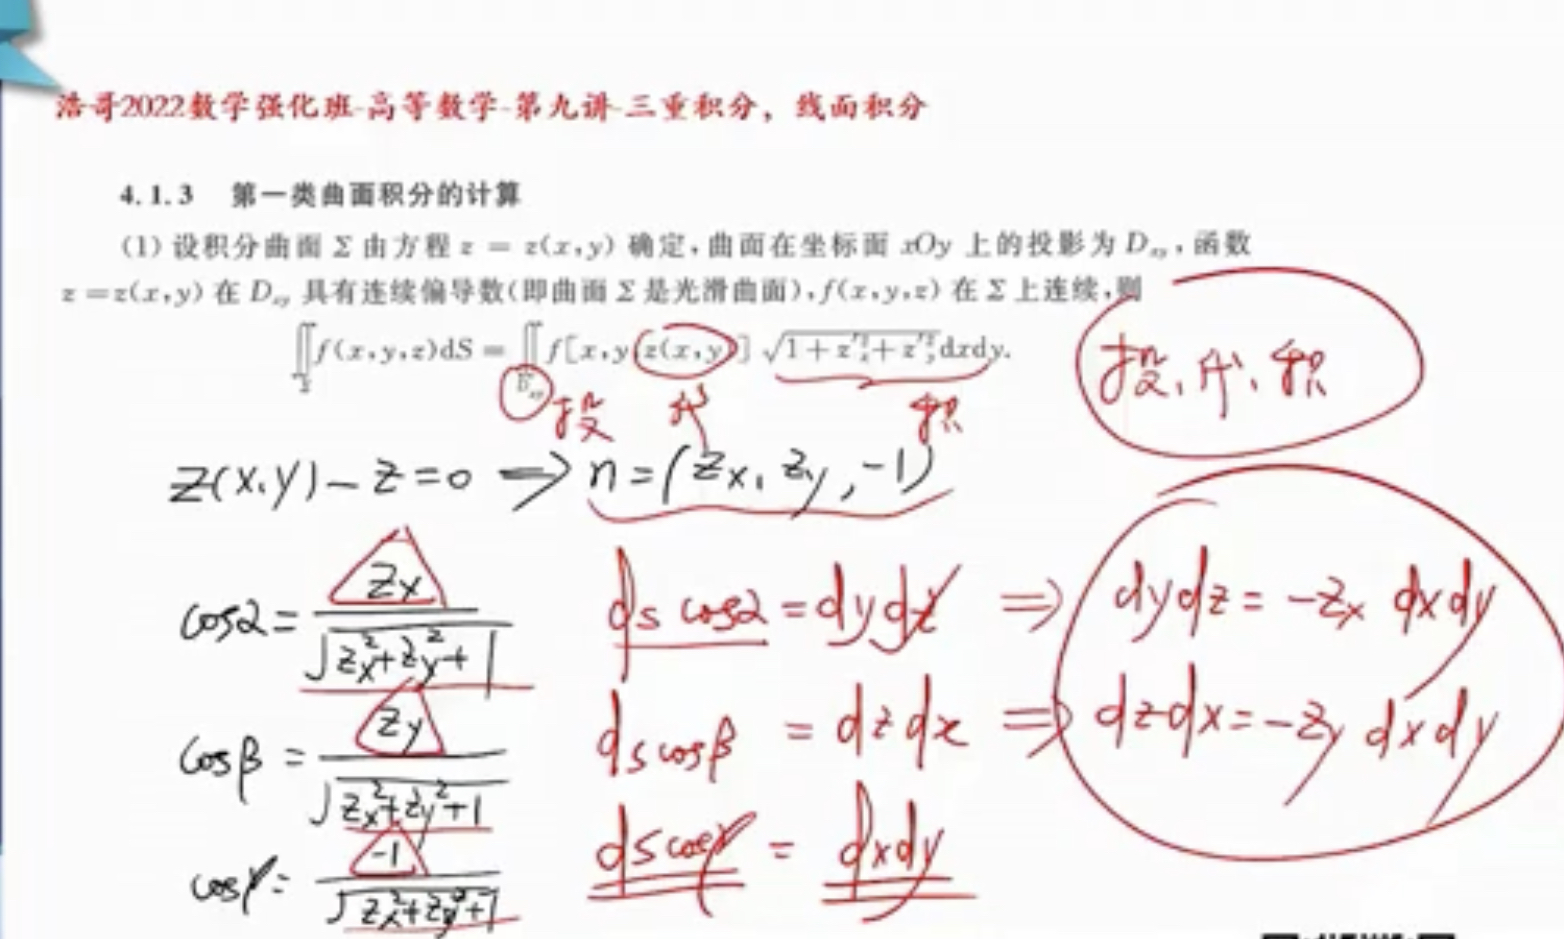 浩哥2022数学强化班-高等数学-第九讲-三重积分，线面积分
4.1.3 第一类曲面积分的计算
(1) 设积分曲面 Σ 由方程 z = z(x,y) 确定,曲面在坐标面 xOy 上的投影为 Dxy,函数
z = z(x,y) 在 Dxy 具有连续偏导数(即曲面 Σ 是光滑曲面),f(x,y,z) 在 Σ 上连续,则
∬_Σ f(x,y,z)dS = ∬_Dxy f[x,y,z(x,y)] √(1+z'x²+z'y²)dxdy.
投、代、积
投 代 积
z(x,y)-z=0 ⇒ n=(zx, zy, -1)
cosα = zx/√(zx²+zy²+1) ds cosα = dydz ⇒ dydz = -zx dxdy
cosβ = zy/√(zx²+zy²+1) ds cosβ = dzdx ⇒ dzdx = -zy dxdy
cosγ = -1/√(zx²+zy²+1) ds cosγ = dxdy